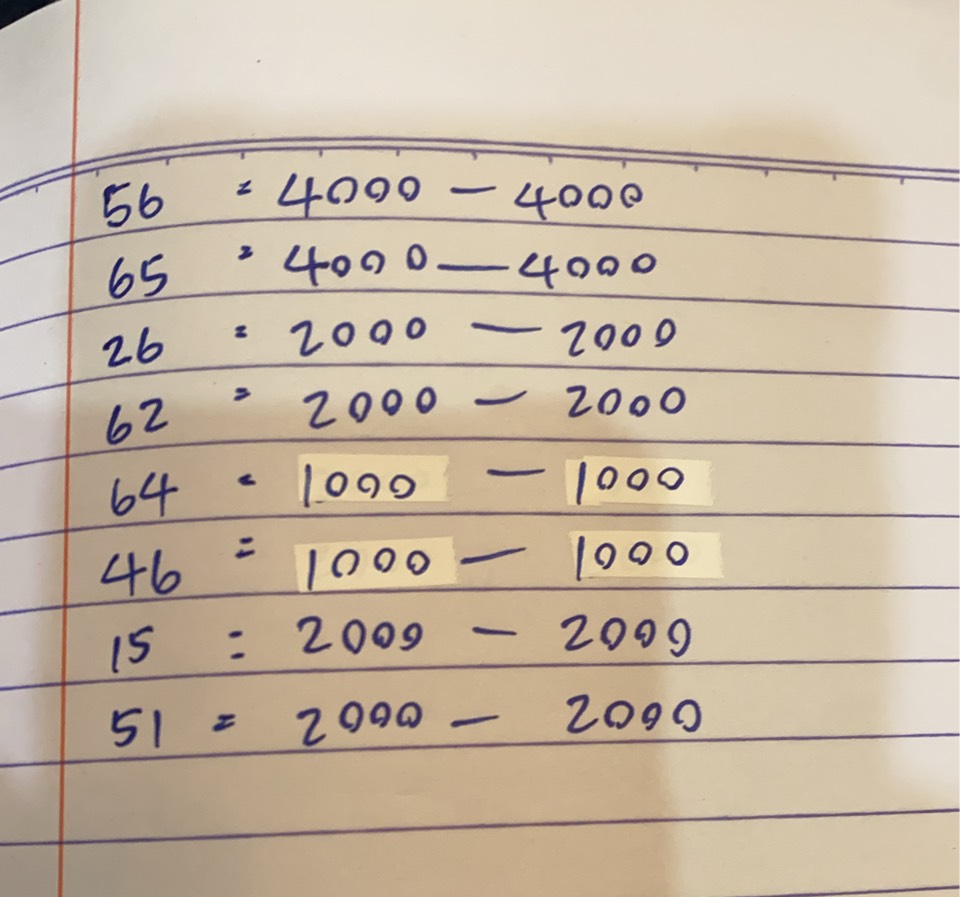 56 = 4000 — 4000
65 = 4000 — 4000
26 = 2000 — 2000
62 = 2000 — 2000
64 = 1000 — 1000
46 = 1000 — 1000
15 = 2000 — 2000
51 = 2000 — 2000